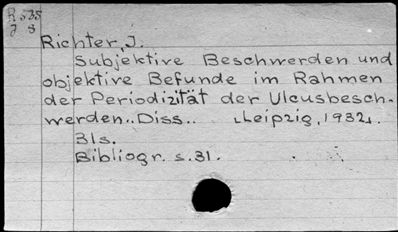 R 535
J 8
Richter, J.
Subjektive Beschwerden und
objektive Befunde im Rahmen
der Periodizität der Ulcusbesch-
werden.. Diss.. Leipzig, 1932.
31s.
Bibliogr. s.31.